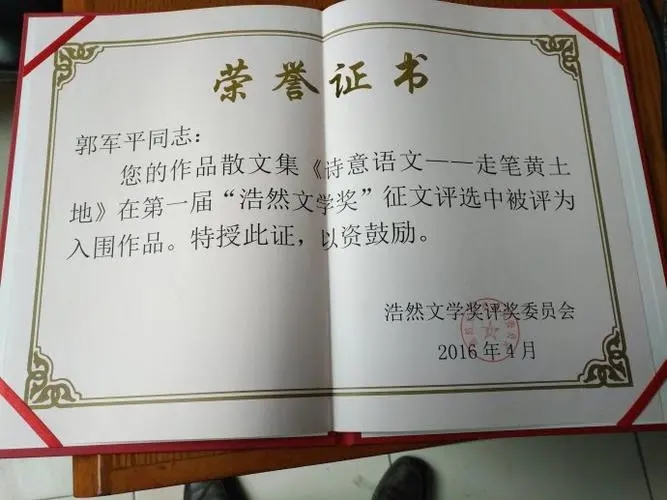 荣誉证书
郭军平同志：
您的作品散文集《诗意语文——走笔黄土
地》在第一届“浩然文学奖”征文评选中被评为
入围作品。特授此证，以资鼓励。
浩然文学奖评奖委员会
2016年4月